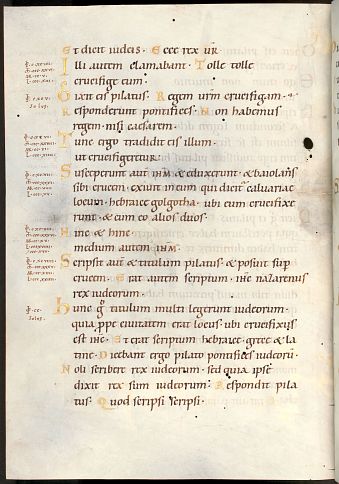 Et dicit iudeis · Ecce rex ur̅
Illi autem clamabant · Tolle tolle
crucifige eum ·
Dixit eis pilatus · Regem ur̅m crucifigam ·
Responderunt pontifices · Non habemus
regem nisi caesarem ·
Tunc ergo tradidit eis illum ·
ut crucifigeretur ·
Susceperunt aut̅ ih̅m & eduxerunt · & baiolans
sibi crucem exiuit in eum qui dicit̅ caluariae
locum · hebraice golgotha · ubi eum crucifixe
runt · & cum eo alios duos ·
hinc & hinc ·
medium autem ih̅m ·
Scripsit aut̅ & titulum pilatus · & posuit sup̅
crucem · Erat autem scriptum · ih̅c nazarenus
rex iudeorum ·
hunc g̊ titulum multi legerunt iudeorum ·
quia ppe ciuitatem erat locus · ubi crucifixus
est ih̅c · Et erat scriptum hebraice · grece & la
tine · Dicebant ergo pilato pontifices iudeoru̅ ·
Noli scribere rex iudeorum · sed quia ipse
dixit rex sum iudeorum · Respondit pila
tus · Quod scripsi scripsi ·